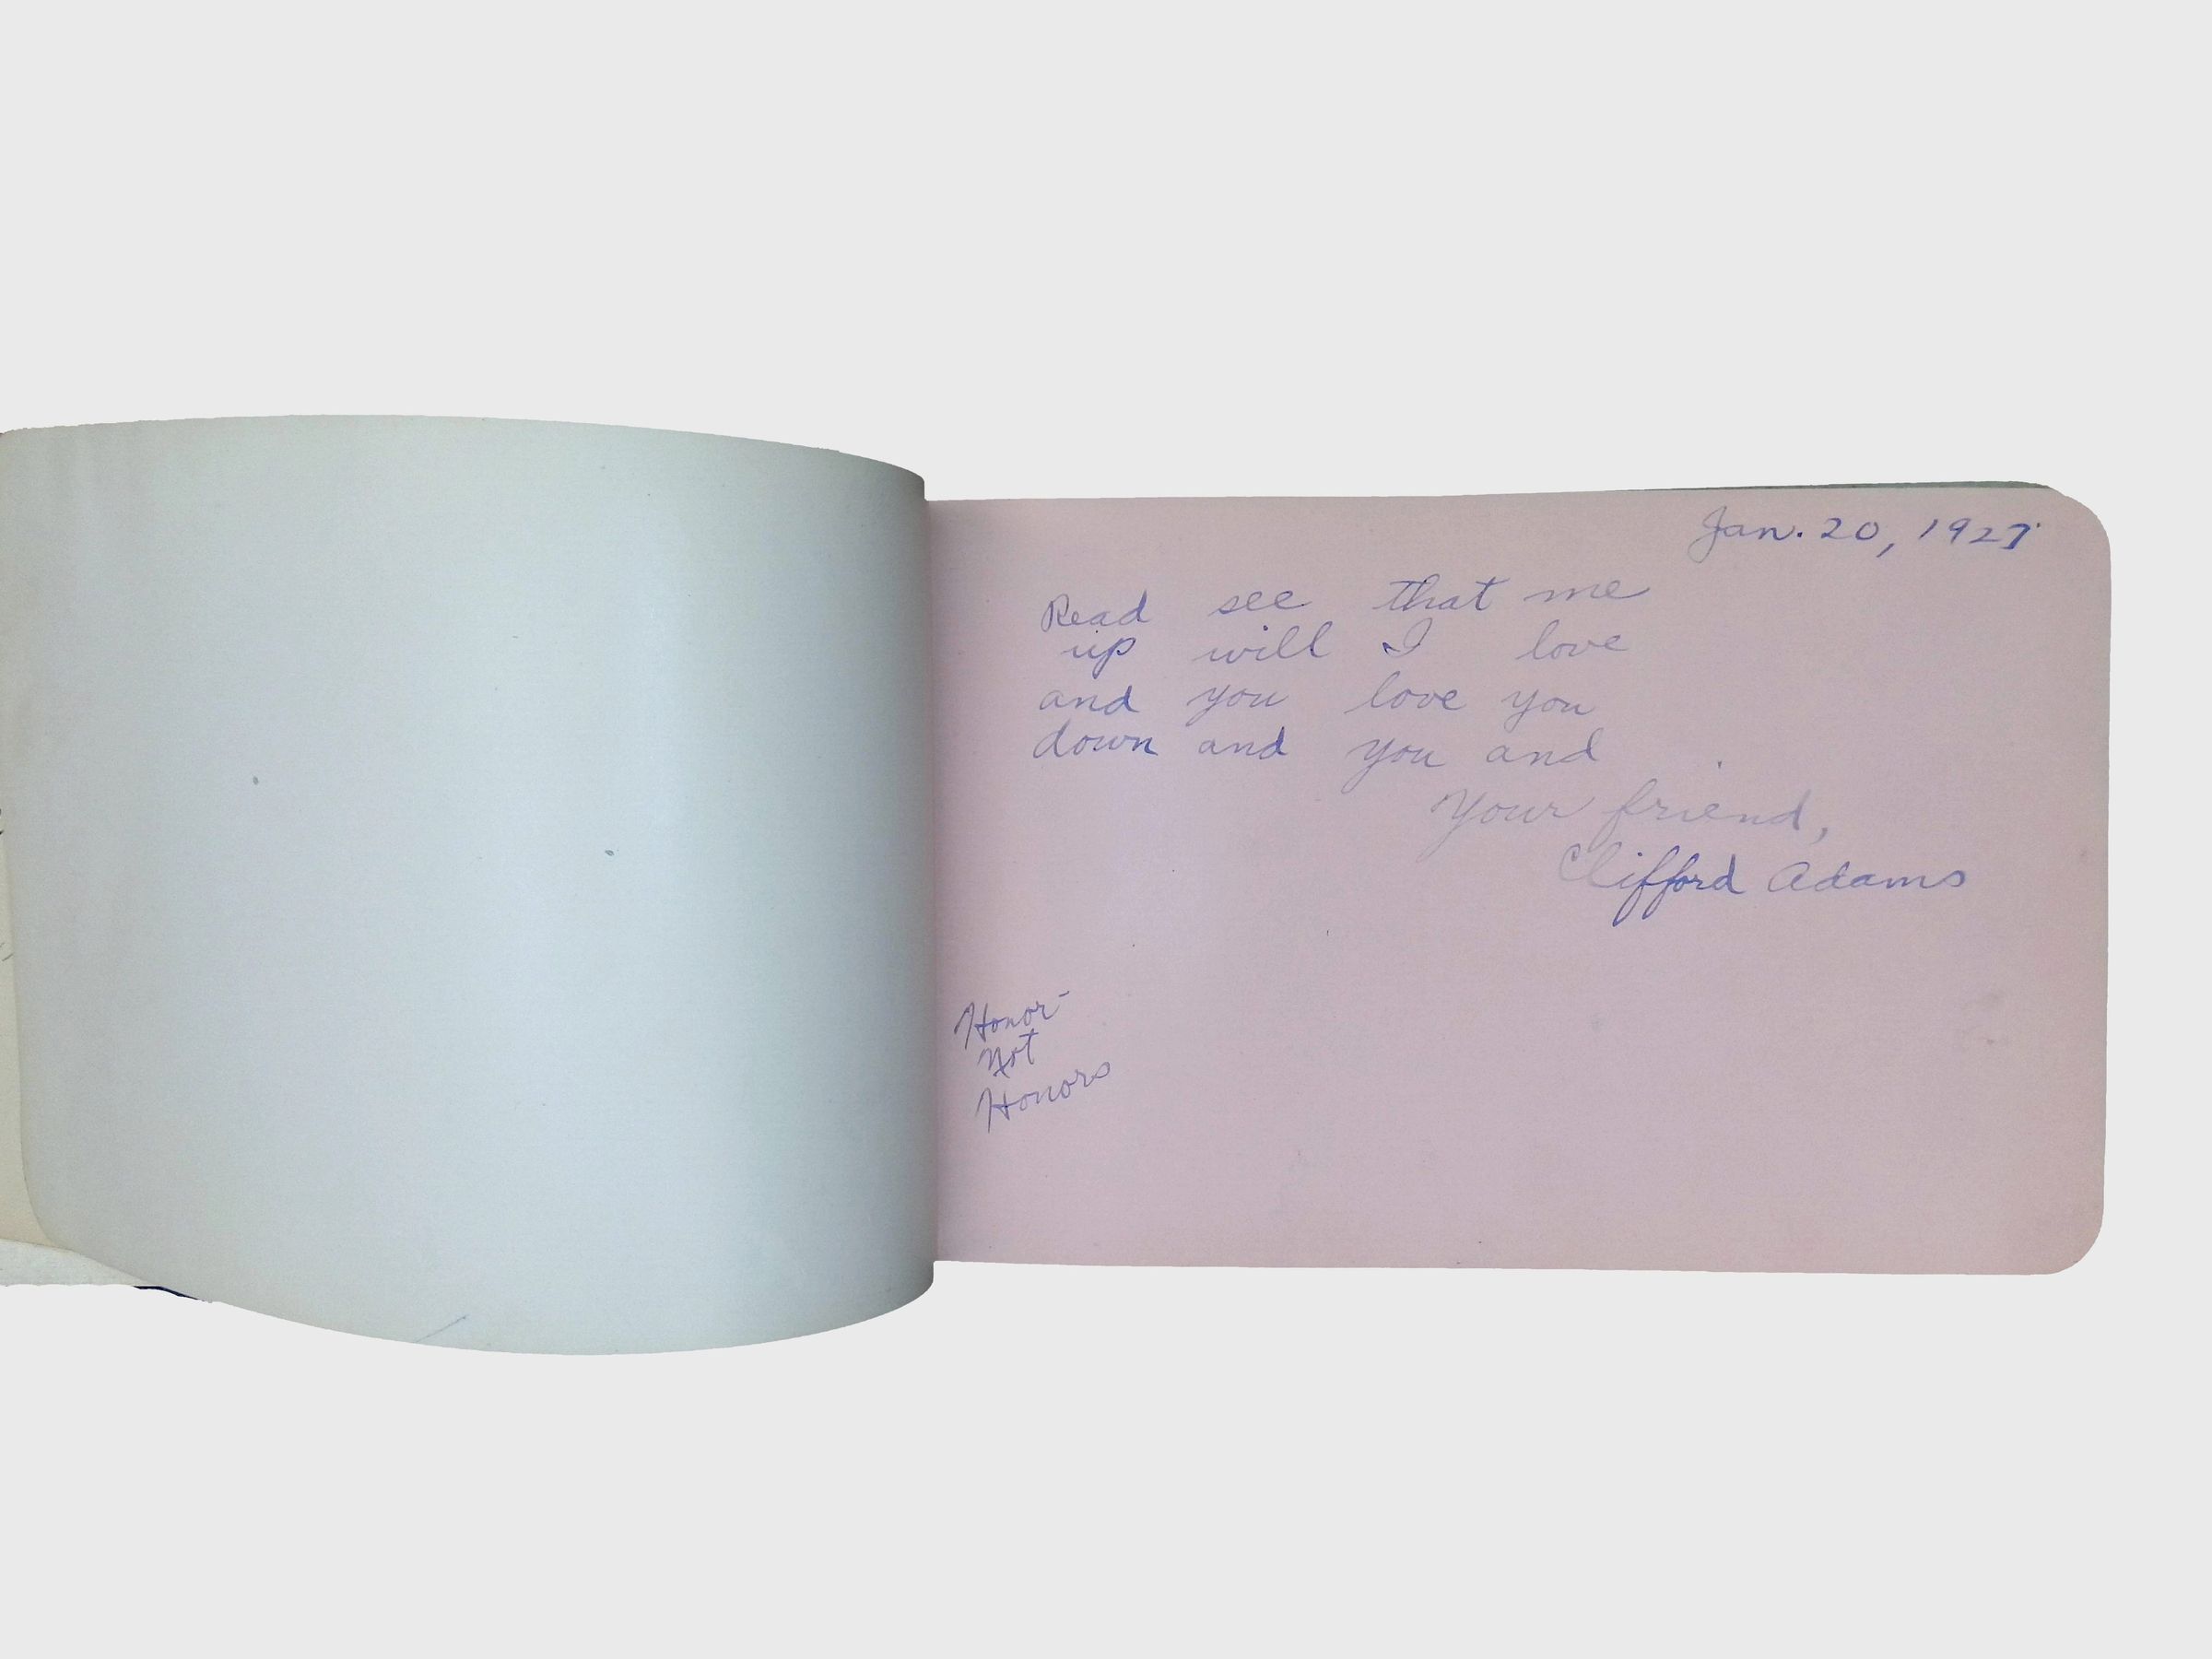 Jan. 20, 1927
Read see that me
up will I love
and you love you
down and you and
Your friend,
Clifford Adams
Honor-
Not
Honors